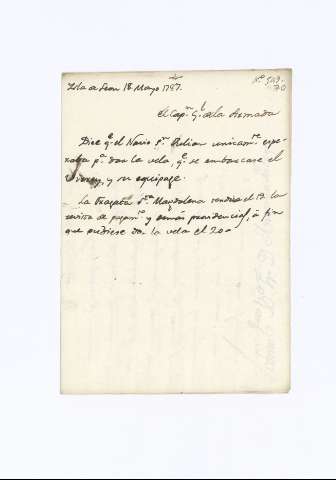 Isla de Leon 18 Mayo 1797.
Nº 549.
70
El Capn. Gl. de la Armada
Dice q. el Navio Sn. Julian unicamte. espe-
raba pa. dar la vela, q. se embarcase el
y su equipage.
La Fragata Sta. Magdalena rendira el 19 la
revista de pagamto. y demas providencias, á fin
que pudiese dar la vela el 20.